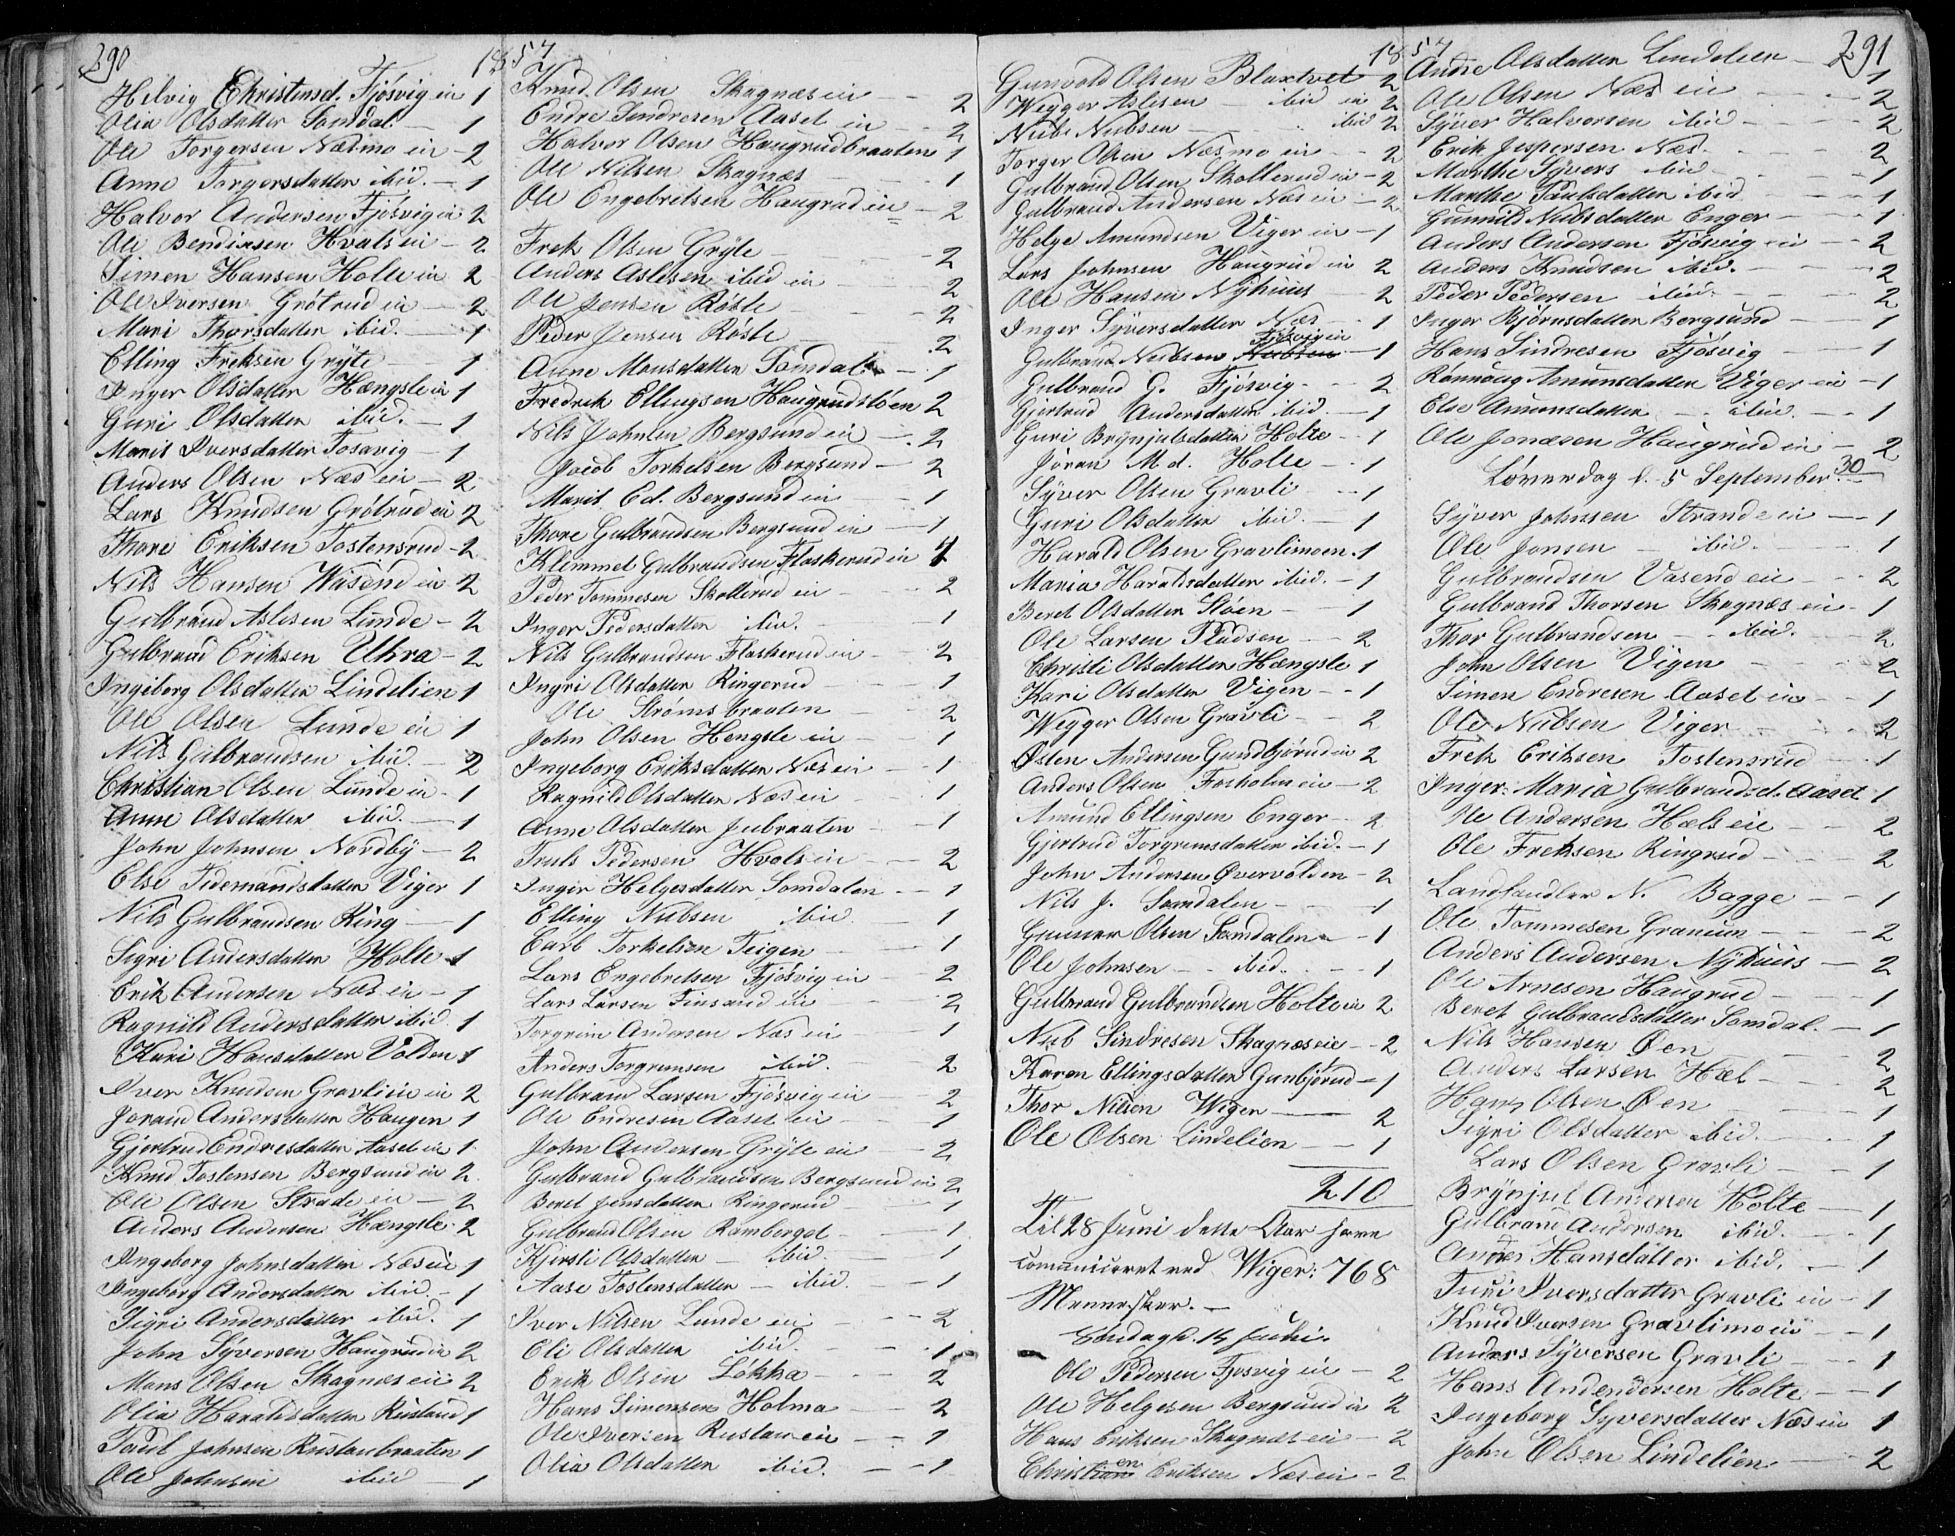 290
1857
Helvig Christensd. Fjösvig ei 1
Olia Olsdatter Somdal. 1
Ole Torgersen Næsmo ei 2
Anne Torgersdatter ibid. 1
Halvor Andersen Fjösvig ei 2
Ole Bendixsen Hvals ei 2
Simen Hansen Holte ei 2
Ole Iversen Grötrud ei 2
Mari Thorsdatter ibid. 1
Elling Freksen Gryte 1
Inger Olsdatter Hængsle ei 1
Guri Olsdatter ibid. 1
Marit Iversdatter Fosavig 1
Anders Olsen Næs ei 2
Lars Knudsen Grötrud ei 2
Thore Eriksen Tostensrud 2
Nils Hansen Wasend ei 2
Gulbrand Aslesen Lunde 2
Gulbrand Eriksen Uhra 2
Ingeborg Olsdatter Lindelien 1
Ole Olsen Lunde ei 1
Nils Gulbrandsen ibid. 2
Christian Olsen Lunde ei 1
Anne Olsdatter ibid. 1
John Johnsen Nordby 2
Else Tidemandsdatter Viger 1
Nils Gulbrandsen Ring 1
Sigri Andersdatter Holte 1
Erik Andersen Næs ei 1
Ragnild Andersdatter ibid 1
Kari Hansdatter Volden 1
Iver Knudsen Gravlien ei 2
Jorand Andersdatter Haugen 1
Gjertrud Endresdatter Aaset ei 1
Knud Tostensen Bergsund ei 2
Ole Olsen Strade ei 2
Anders Andersen Hængsle 2
Ingeborg Johnsdatter Næs ei 1
Ingeborg Andersdatter ibid. 1
Sigri Andersdatter ibid. 1
John Syversen Haugrud ei 2
Mons Olsen Skagnæs ei 2
Olia Haraldsdatter Rustand 1
Paul Johnsen Rustanbraaten 1
Ole Johnsen ibid 1
Knud Olsen Skagnæs ei 2
Endre Sendresen Aaset ei 2
Halvor Olsen Haugrudbraaten 1
Ole Nilsen Skagnæs 1
Ole Engebretsen Haugrud ei 2
Frek Olsen Gryte 2
Anders Aslesen ibid ei 2
Ole Jensen Roste 2
Peder Jensen Roste 2
Anne Monsdatter Somdal 1
Fredrik Ellingsen Haugrudsloen 2
Nils Johnsen Bergsund ei 2
Jocob Torkelsen Bergsund 2
Marit Ed. Bergsund ei 1
Thore Gulbrandsen Bergsund ei 1
Klemmet Gulbrandsen Flaskerud ei 1
Peder Tommesen Skollerud ei 2
Inger Pedersdatter ibid. 1
Nils Gulbrandsen Flaskerud ei 2
Ingri Olsdatter Ringerud 1
Ole Strömsbraaten 2
John Olsen Hengsle ei 1
Ingeborg Eriksdatter Næs ei 1
Ragnild Olsdatter Næs ei 1
Anne Olsdatter Jubraaten 1
Truls Pedersen Hvols ei 2
Inger Helgesdatter Somdalen 1
Elling Nubsen ibid 1
Carl Torkelsen Teigen 1
Lars Engebretsen Fjösvig ei 2
Lars Larsen Finsand ei 2
Torgrim Andersen Næs ei 1
Anders Torgrimsen ibid. 2
Gulbrand Larsen Fjösvig ei 2
Ole Endresen Aaset ei 1
John Andersen Gryte ei 2
Gulbrand Gulbrandsen Bergsund ei 2
Beret Jensdatter Ringerud 1
Gulbrand Olsen Ramberget 1
Kjersti Olsdatter ibid 1
Aase Tostensdatter ibid. 1
Iver Nilsen Lunde ei 2
Oli Olsdatter ibid. 1
Erik Olsen Løkka 2
Hans Simensen Holma 2
Ole Iversen Rustan ei 1
Olia Olsdatter ibid. 1
1857
291
Gunvold Olsen Blaxtvet 2
Wegger Aslesen ibid ei 2
Nub Nubsen ibid 2
Torger Olsen Næsmo ei 2
Gulbrand Olsen Skollerud ei 2
Gulbrand Andersen Næs ei 2
Helge Amundsen Viger ei 1
Lars Johnsen Haugrud ei 2
Ole Hansen Nyhuus 2
Inger Syversdatter Næs 1
Fjösvig ei
Gulbrand Nubsen Nubsen 1
Gulbrand G. Fjösvig 2
Gjertrud Andersdatter ibid. 1
Guri Brynjulsdatter Holte 1
Jöran M d. Holte 1
Syver Olsen Gravli 1
Guri Olsdatter ibid. 1
Harald Olsen Gravlimoen 1
Maria Haraldsdatter ibid. 1
Beret Olsdatter Sloen 1
Ole Larsen Pladsen 2
Christi Olsdatter Hængsle 1
Kari Olsdatter Vigen 1
Wegger Olsen Gravli 2
Østen Andersen Gundbjörud ei 2
Anders Olsen Forholm ei 2
Amund Ellingsen Enger 2
Gjertrud Torgrimsdatter ibid. 1
John Andersen Øvervolden 2
Nils J. Somdalen 1
Gunner Olsen Somdalen 1
Ole Johnsen ibid. 1
Gulbrand Gulbrandsen Holte ei 2
Nub Sindresen Skagnæs ei 2
Karen Ellingsdatter Gunbjörud 1
Thor Nilsen Wiger 2
Ole Olsen Lindelien 1
210
Til 28 Juni dette Aar have
comuniceret ved Wiger: 768
Mennesker.
Söndag d. 14 Juni.
Ole Pedersen Fjosvig ei 2
Ole Helgesen Bergsund ei 2
Hans Eriksen Skagnæs ei 2
Christen Eriksen Næs ei 2
Andre Olsdatter Lindelien 1
Ole Olsen Næs ei 2
Syver Halvorsen ibid 2
Erik Jespersen Næs 2
Marthe Syvers ibid 1
Marthe Paulsdatter ibid 1
Gunnild Nubsdatter Enger 1
Anders Andersen Fjösvig ei 2
Anders Knudsen ibid. 2
Peder Pedersen ibid. 2
Inger Bjørnsdatter Bergsund 1
Hans Sindresen Fjösvig 1
Rannoug Amunsdatter Viger ei 1
Else Amonsdatter ibid. 1
Ole Jonasen Haugrud ei 2
30
Løverdag d. 5 September.
Syver Johnsen Strande ei 1
Ole Jonsen ibid. 1
Gulbrandsen Vasend ei 2
Gulbrand Thorsen Skagnæs ei 1
Thor Gulbrandsen ibid. 2
John Olsen Vigen 2
Simen Endresen Aaset ei 1
Ole Nubsen Viger 2
Frek Eriksen Tostensrud 1
Inger Maria Gulbrandsd. Aaset 1
Ole Andersen Hæls ei 2
Ole Freksen Ringrud 2
Landhandler N. Bagge 1
Ole Tommesen Granum 2
Anders Andersen Nyhuus 2
Ole Arnesen Haugrud 1
Beret Gulbrandsdatter Somdal 1
Nils Hansen Øen 2
Anders Larsen Hæl 2
Hans Olsen Øen 1
Sigri Olsdatter ibid. 1
Lars Olsen Gravli 1
Brynjul Andersen Holte 1
Gulbrand Andersen ibid. 1
Andre Hansdatter ibid. 1
Turi Iversdatter Gravli ei 1
Knud Iversen Gravlimo ei 1
Anders Syversen Gravli 1
Hans Andendersen Holte 1
Ingeborg Syversdatter Næs ei 1
John Olsen Lindelien 2